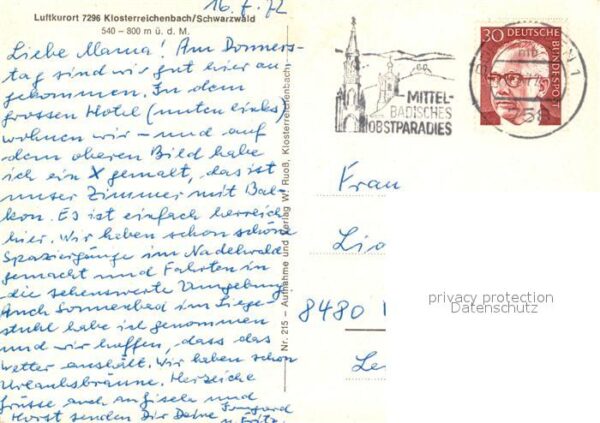 Luftkurort 7296 Klosterreichenbach/Schwarzwald
540 – 800 m ü. d. M.
16.7.72
Liebe Mama! Am Donners-
tag sind wir gut hier an-
gekommen. In dem
grossen Hotel (unten links)
wohnen wir – und auf
dem oberen Bild habe
ich ein X gemalt, das ist
unser Zimmer mit Bal-
kon. Es ist einfach herrlich
hier. Wir haben schon schöne
Spaziergänge im Nadelwald
gemacht und Fahrten in
die sehenswerte Umgebung
Auch Sonnenbad im Liege-
stuhl habe ich genommen
und wir hoffen, dass das
Wetter anhält. Wir haben schon
Urlaubsbräune. Herzliche
Grüsse auch an Gisela und
Horst senden Dir Deine Irmgard
u. Fritz.
Nr. 215 – Aufnahme und Verlag W. Ruoß, Klosterreichenbach
MITTEL-
BADISCHES
OBSTPARADIES
30 DEUTSCHE
BUNDESPOST
Frau
8480
privacy protection
Datenschutz